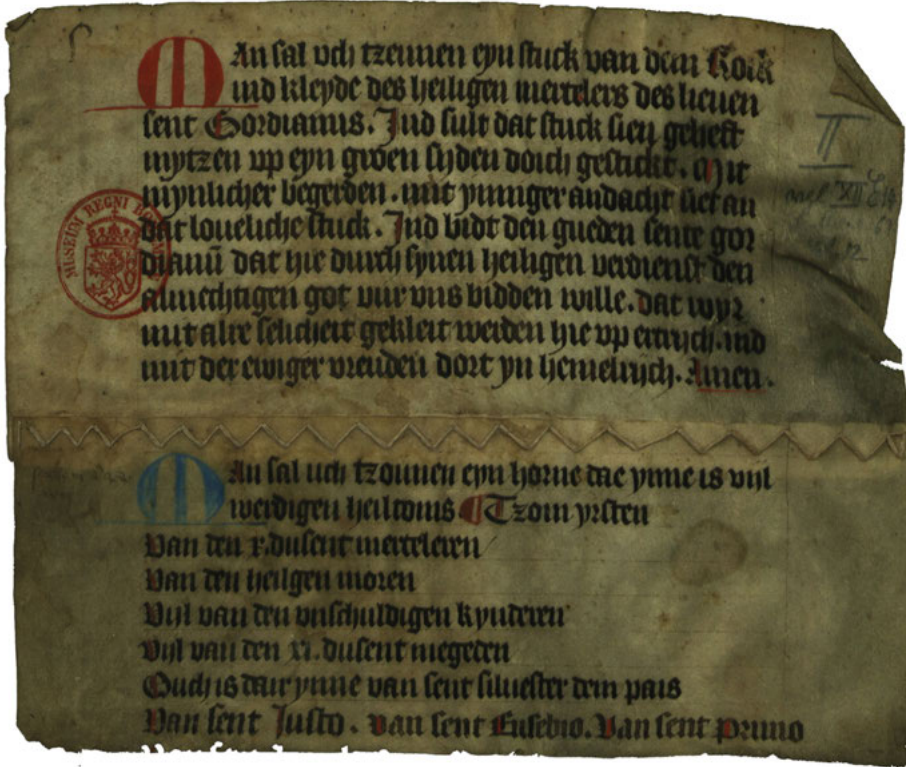 MAn sal uch tzeunen eyn stuck van dem Rock
ind kleyde des heiligen mertelers des lieuen
sent Gordianus. Ind sult dat stuck sien geheft
mytzen up eyn groen syden doich gestickt. Mit
mynlicher begerden. mit ynniger andacht siet an
dat loueliche stuck. Ind bidt den gueden sente gor
dianu̅ dat hie durch synen heiligen verdienst den
almechtigen got vur vns bidden wille. dat wyr
mit alre selicheit gekleit werden hie vp ertrijch. ind
mit der ewiger vreuden dort yn hemelrijch. Amen.
MAn sal uch tzounen eyn horne dae ynne is vijl
werdigen heiltoms Tzom yrsten
Van den x. dusent merteleren
Van den heilgen moren
Vijl van den vnschuldigen kynderen
Vijl van den xi. dusent megeden
Ouch is dair ynne van sent siluester dem pais
Van sent Justo. Van sent Eusebio. Van sent Primo
MUSEUM REGNI
II
XII